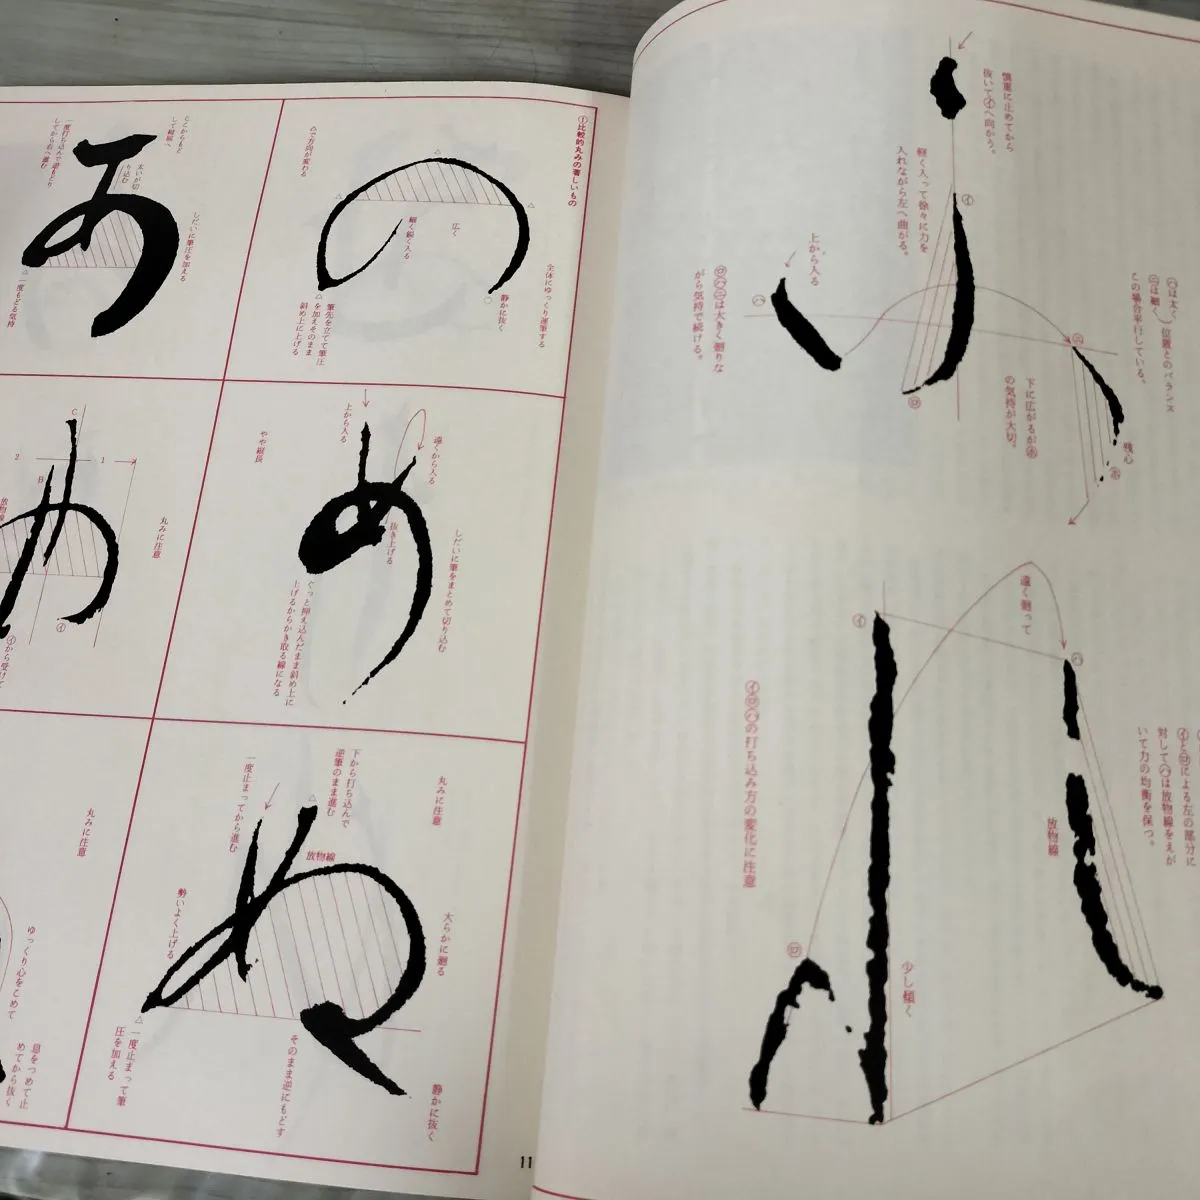 慎重に止めてから
抜いて㋑へ向かう。
軽く入って徐々に力を
入れながら左へ曲がる。
㋑
上から入る
㋩
㋺㋩㋥は大きく廻りな
がら気持で続ける。
㋺
㋩は太く
㋥は細く
位置とのバランス
この場合平行している。
㋥
下に広がるが㋭
の気持が大切。
残心
㋭
小
㋑
遠く廻って
㋩
㋑㋺㋩の打ち込み方の変化に注意
放物線
㋑と㋺による左の部分に
対して㋩は放物線をえが
いて力の均衡を保つ。
㋺
少し傾く
①比較的丸みの著しいもの
の
全体にゆっくり運筆する
静かに抜く
広く
細く鋭く入る
筆先を立てて筆圧
を加えそのまま
斜め上に上げる
△で方向が変わる
あ
ここからもど
して縦長へ
太いが切
り込む
一度打ち込んで逆もどり
してから右へ進む
しだいに筆圧を加える
一度もどる気持
め
上から入る
遠くから入る
やや縦長
抜き上げる
しだいに筆をまとめて切り込む
ぐっと押え込んだまま斜め上に
上げるからかき取る線になる
C
2
1
B
丸みに注意
放物線
㋑
㋑から受けて
ぬ
下から打ち込んで
逆筆のまま進む
丸みに注意
一度止まってから進む
放物線
勢いよく上げる
大らかに廻る
一度止まって筆
圧を加える
そのまま逆にもどす
静かに抜く
丸みに注意
ゆっくり心をこめて
息をつめて止
めてから抜く
11